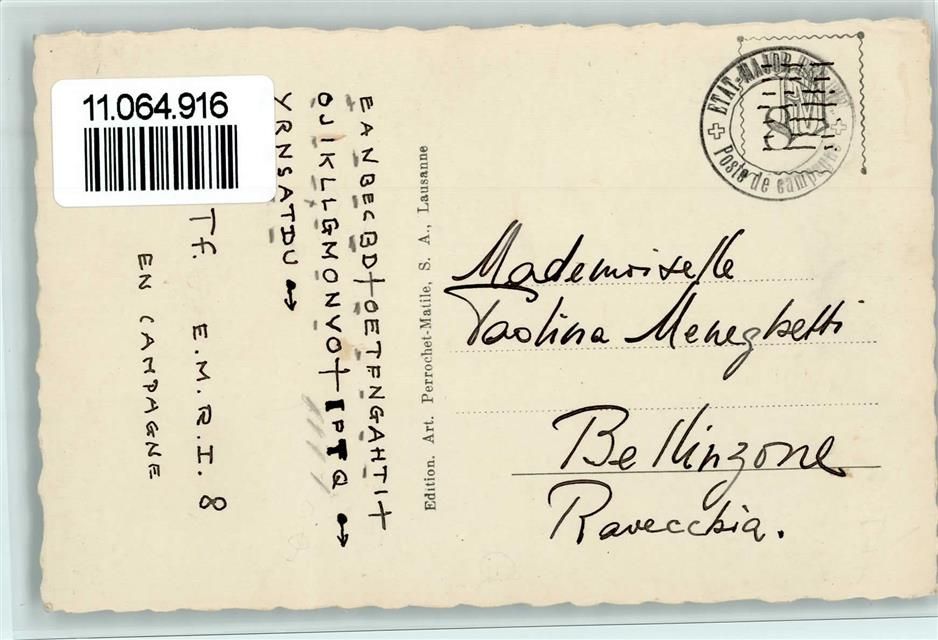 11.064.916
EANBECBD+OETFNGAHTI+
OJIKLLGMONVO+IPTQ
YRNSATDU
Tf. E.M.R.I. 8
EN CAMPAGNE
Edition. Art. Perrochet-Matile, S. A., Lausanne
ETAT-MAJOR
Poste de campagne
Mademoiselle
Paolina Meneghetti
Bellinzone
Ravecchia.